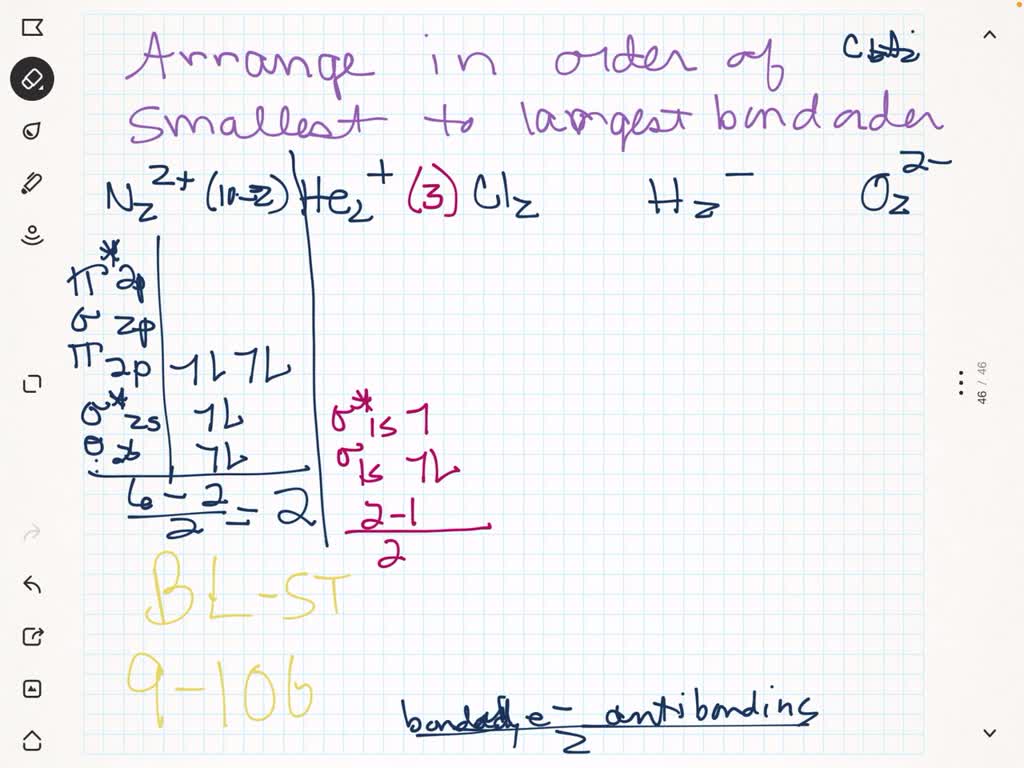 Arrange in order of
smallest to largest bondorder
N₂²⁺ (10-2) He₂⁺ (3) Cl₂ H₂⁻ O₂²⁻
π* 2p
σ 2p
π 2p 1L 1L
σ* 2s 1L
σ 2s 1L
6-2/2 = 2
σ* 1s 1
σ 1s 1L
2-1
2
BL-ST
9-106
e⁻ antibonding
2
46 / 46